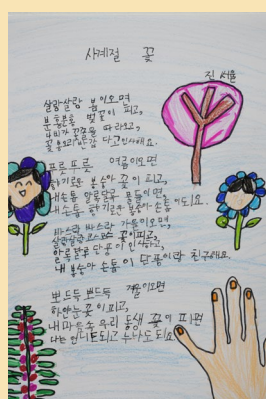 사계절 꽃
진서율
살랑살랑 봄이오면
분홍분홍 벚꽃이 피고,
나비가 꽃잎을 따라오고,
꽃봉오리 반갑다고 인사해요.
푸릇푸릇 여름이오면
향기로운 봉숭아 꽃이 피고,
내손톱 알록달록 물들이면,
내손톱 향기로운 봉숭아 손톱이 되요.
바스락 바스락 가을이오면,
살랑살랑 코스모스 꽃이피고,
알록달록 단풍이 인사하고,
내 봉숭아 손톱이 단풍이랑 친구해요.
뽀드득 뽀드득 겨울이오면
하얀눈꽃이 피고,
내 마음속 우리 동생 꽃이 피면
나는 언니도되고 누나도되요